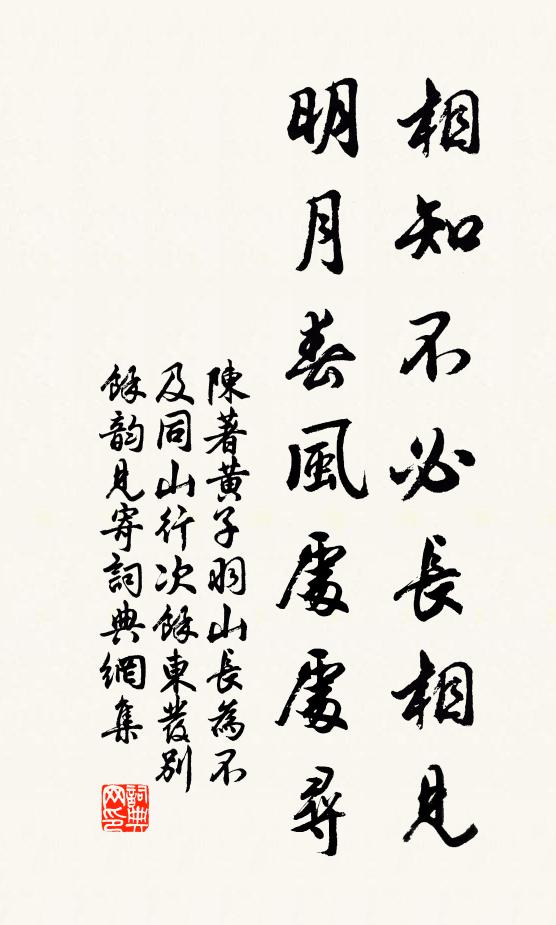 相知不必長相見
明月春風處處尋
陳著黄子羽山長為不
及同山行次餘東發別
餘韵見寄詞典網集
詞典
网印